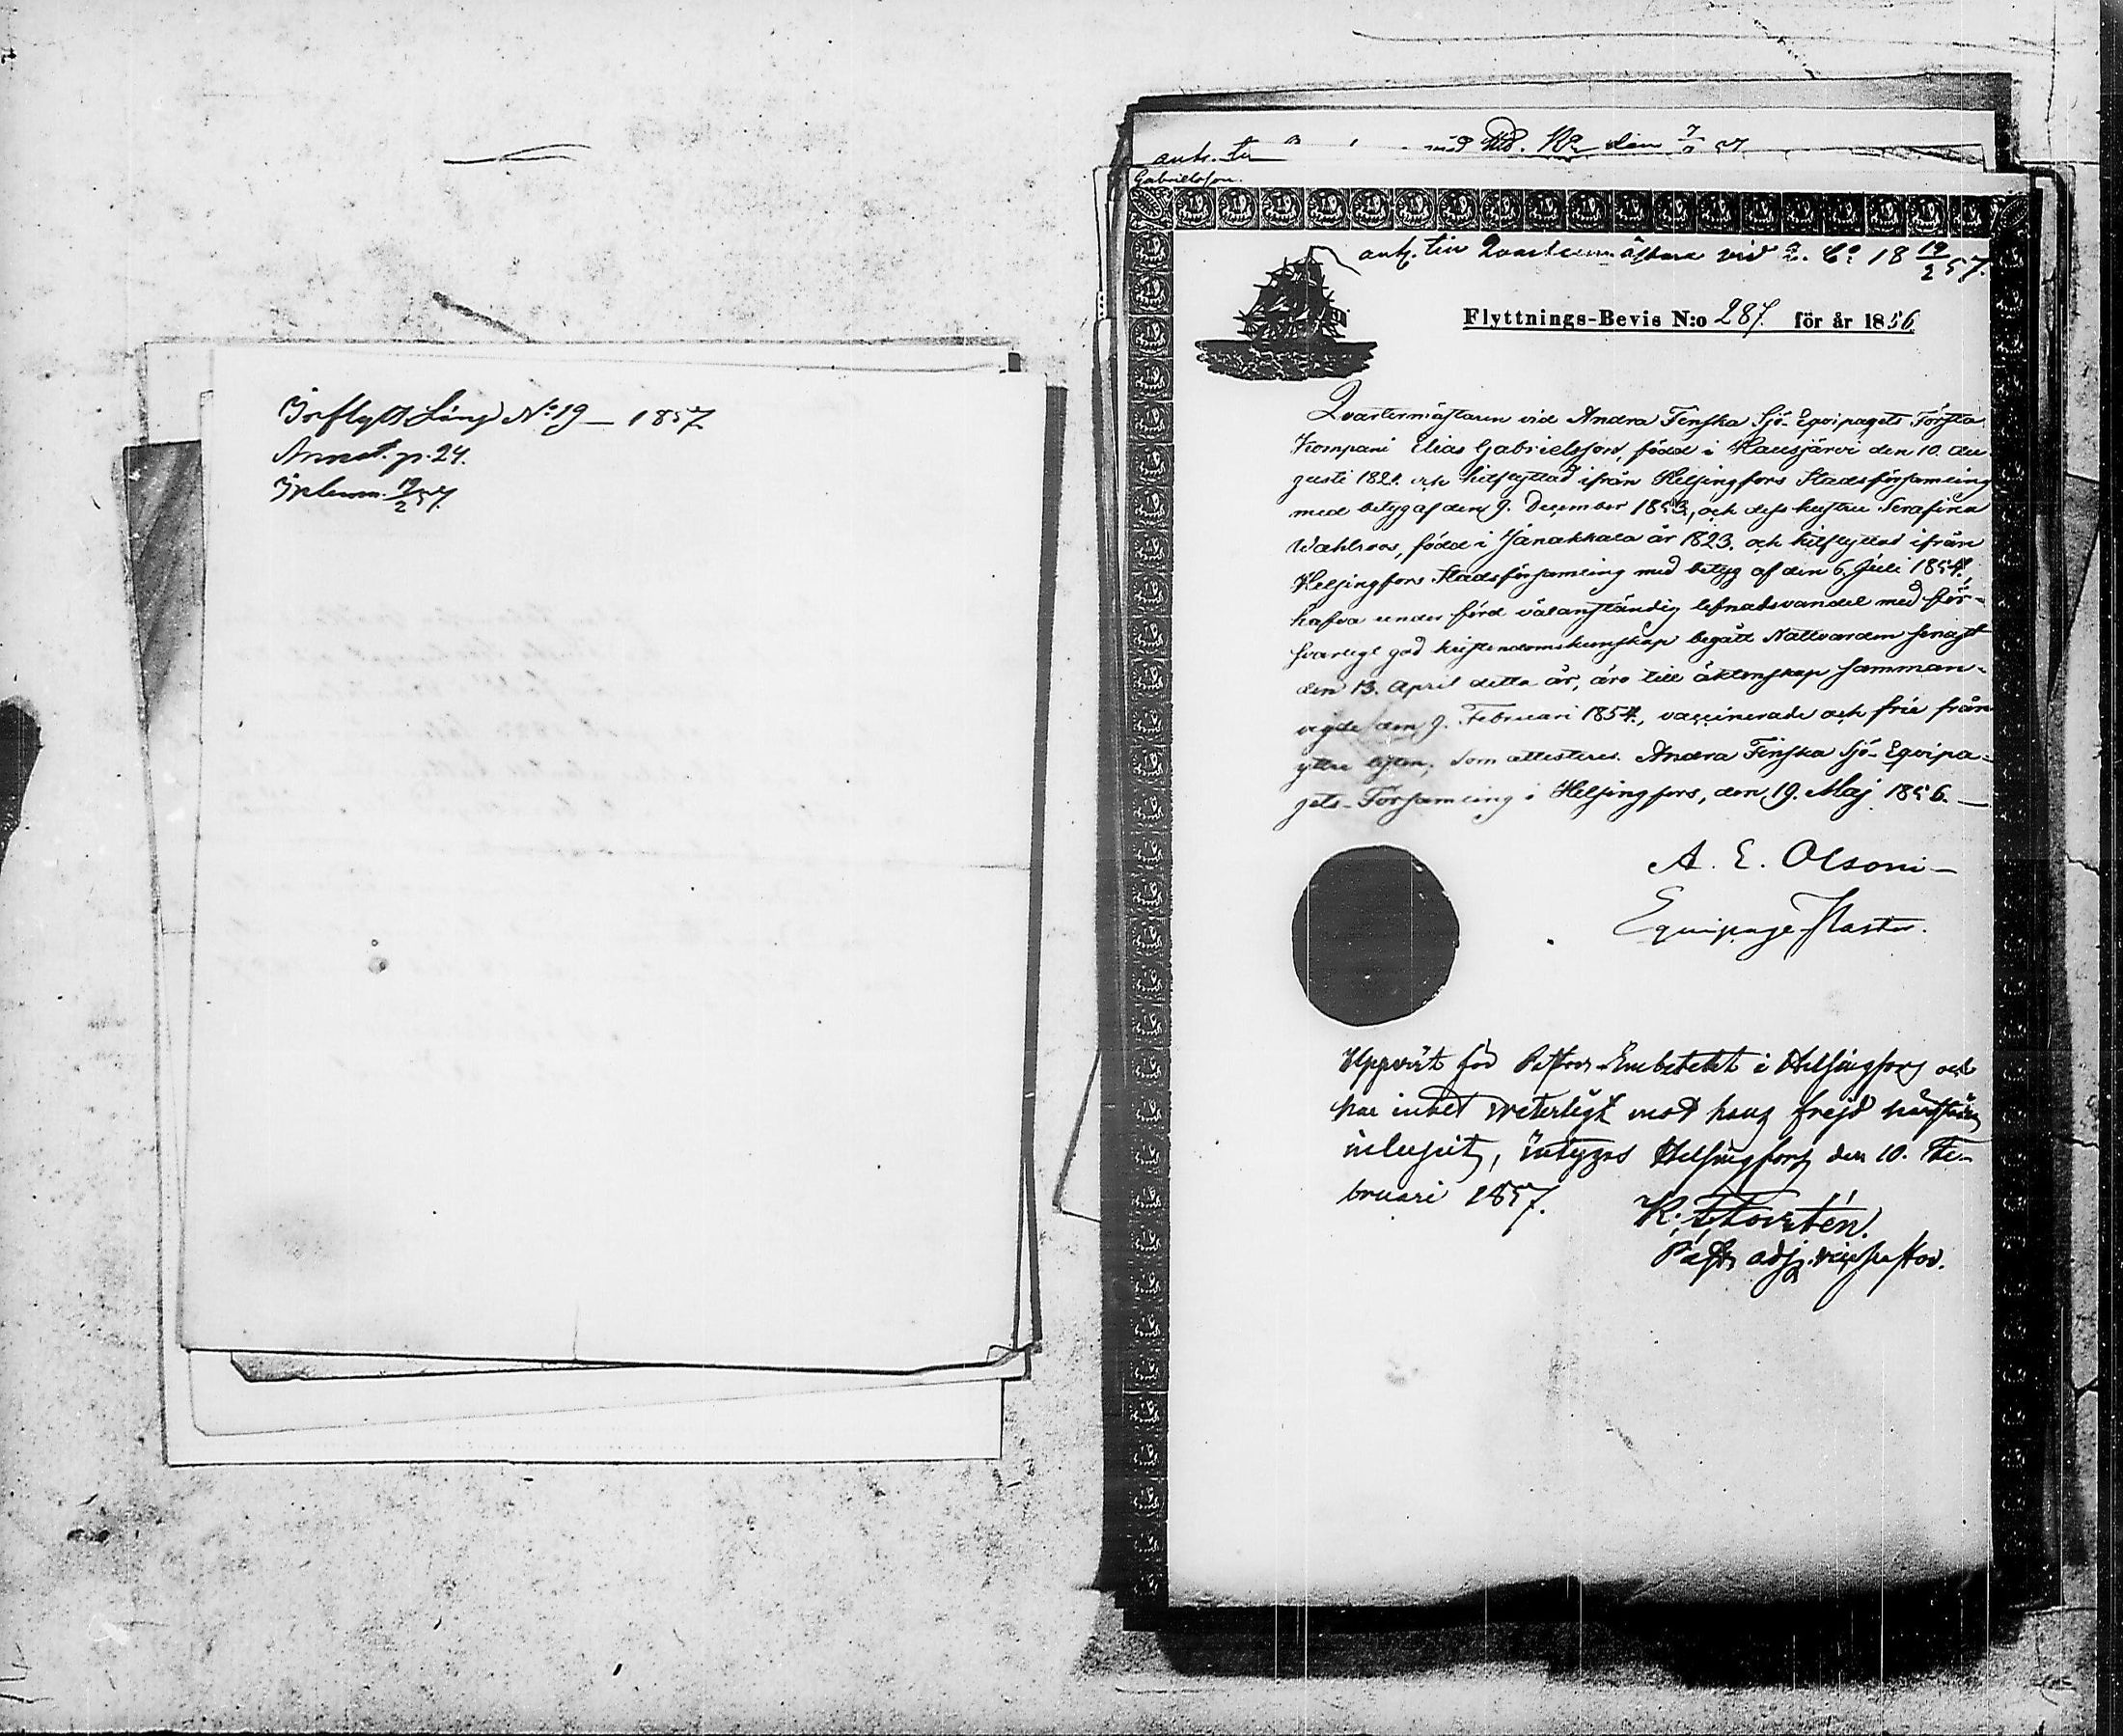 Inflytt Läng No 19 – 1857
Annot. p. 24.
19/2 57.
ank. till med Kp den
Gabrielsson.
ank. till Quartermästare vid 2. Co 18 19/2 57.
Flyttnings-Bevis N:o 287. för år 1856
Qvartermästaren vid Andra Finska Sjö-Eqvipagets Första
Kompani Elias Gabrielsson, född i Hausjärvi den 10. Au-
gusti 1821. och hitflyttad ifrån Helsingfors Stadsförsamling
med betyg af den 9. December 1853, och dess hustru Serafina
Wahlroos, född i Janakkala år 1823. och hitflyttad ifrån
Helsingfors Stadsförsamling med betyg af den 6. Juli 1854,
hafva under förd välanständig lefnadsvandel med för-
svarligt god kristendomskunskap begått Nattvarden senast
den 13. April detta år, äro till äktenskap samman-
vigde den 9. Februari 1854, vaccinerade och frie från
yttre lyten; Som attesteras. Andra Finska Sjö-Eqvipa-
gets-Församling i Helsingfors, den 19. Maj 1856. —
A. E. Olsoni —
Equipage Pastor.
Uppvist för Pastors-Embetetet i Helsingfors och
har intet veterligt mot hans frejd härstädes
influtit, intygas Helsingfors den 10. Fe-
bruari 1857.
K.
Past. adj. vice pastor.